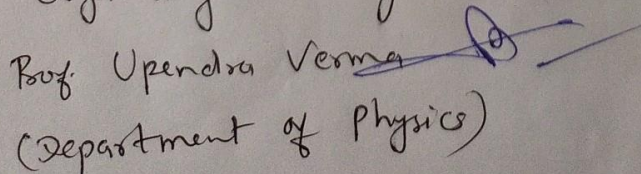 Prof. Upendra Verma
(Department of Physics)